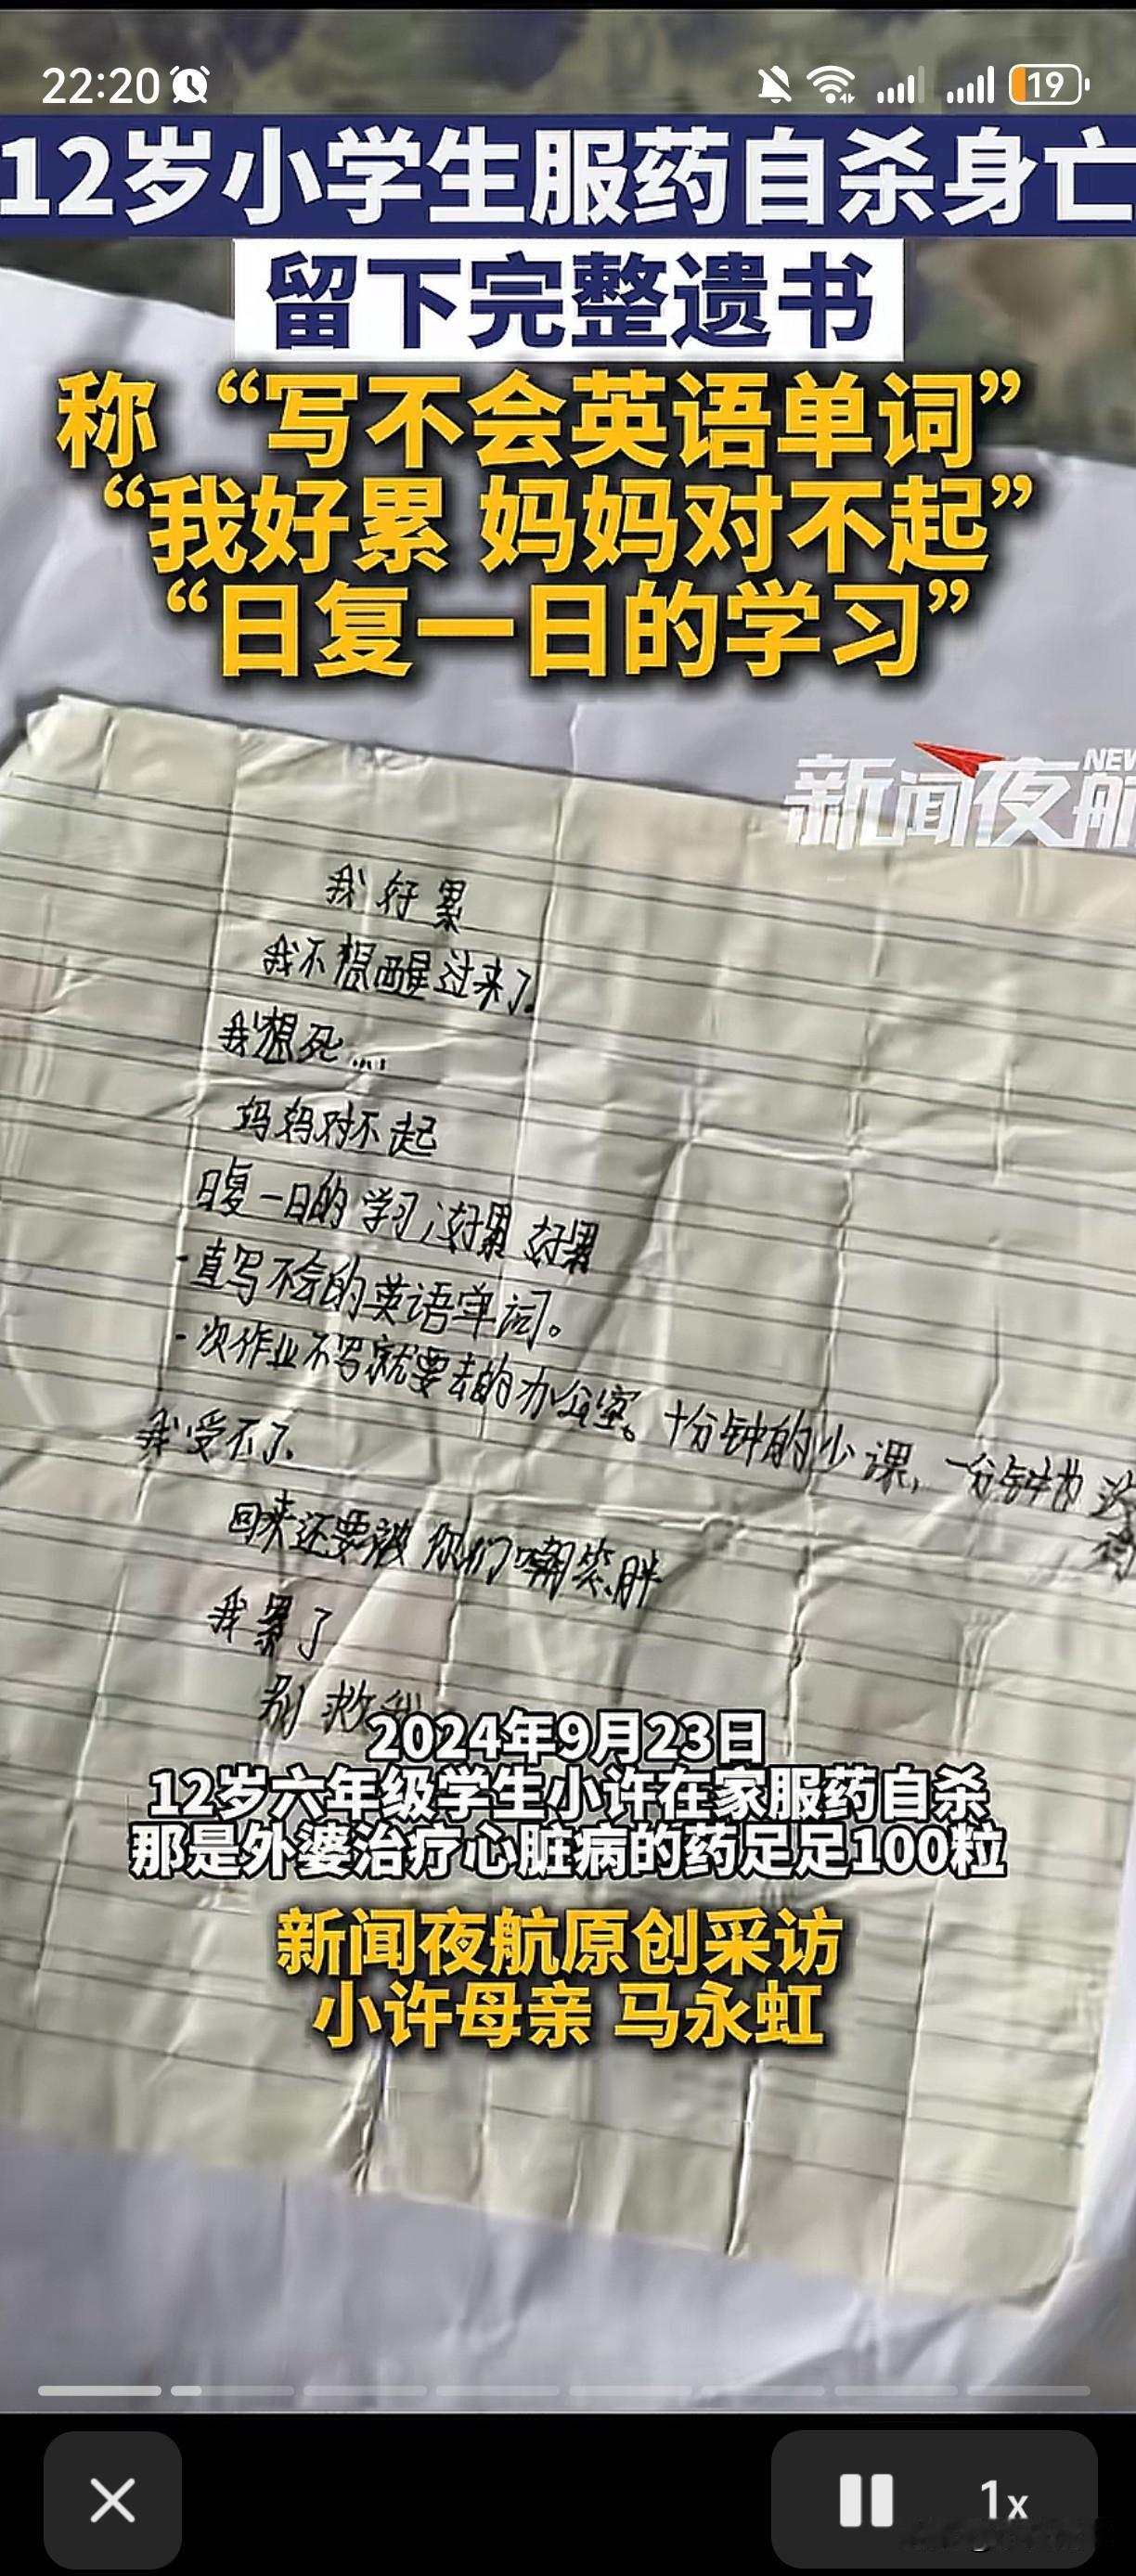 22:20
19
12岁小学生服药自杀身亡
留下完整遗书
称“写不会英语单词”
“我好累 妈妈对不起”
“日复一日的学习”
新闻夜航
NEW
我好累
我不想醒过来了。
我想死....
妈妈对不起
日复一日的学习,好累 好累
一直写不会的英语单词。
一次作业不写就要去的办公室。十分钟的少课,一分钟的
我受不了.
回来还要被你们嘲笑胖
我累了
别救我
2024年9月23日
12岁六年级学生小许在家服药自杀
那是外婆治疗心脏病的药足足100粒
新闻夜航原创采访
小许母亲 马永虹
1x